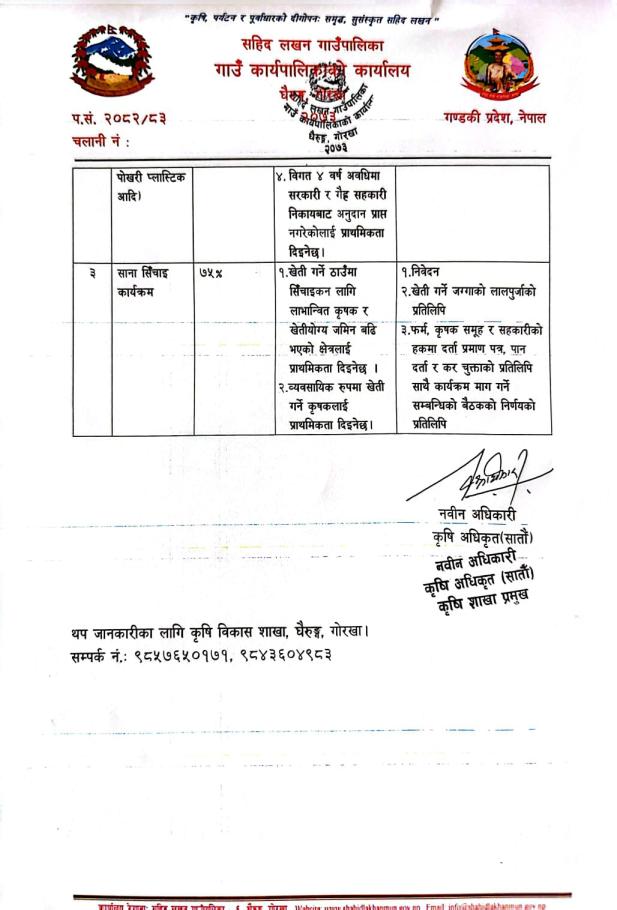 "कृषि, पर्यटन र पूर्वाधारको दीगोपनः समृद्ध, सुसंस्कृत सहिद लखन"
सहिद लखन गाउँपालिका
गाउँ कार्यपालिकाको कार्यालय
घैरुङ्ग, गोरखा
२०७३
गाउँ कार्यपालिकाको कार्यालय
घैरुङ्ग, गोरखा
२०७३
प.सं. २०८२/८३
गण्डकी प्रदेश, नेपाल
चलानी नं :
पोखरी प्लास्टिक
आदि)
४. विगत ४ वर्ष अवधिमा
सरकारी र गैह्र सहकारी
निकायबाट अनुदान प्राप्त
नगरेकोलाई प्राथमिकता
दिइनेछ।
३
साना सिँचाइ
कार्यक्रम
७५%
१.खेती गर्ने ठाउँमा
सिँचाइकन लागि
लाभान्वित कृषक र
खेतीयोग्य जमिन बढि
भएको क्षेत्रलाई
प्राथमिकता दिइनेछ ।
२.व्यवसायिक रुपमा खेती
गर्ने कृषकलाई
प्राथमिकता दिइनेछ।
१.निवेदन
२.खेती गर्ने जग्गाको लालपुर्जाको
प्रतिलिपि
३.फर्म, कृषक समूह र सहकारीको
हकमा दर्ता प्रमाण पत्र, पान
दर्ता र कर चुक्ताको प्रतिलिपि
साथै कार्यक्रम माग गर्ने
सम्बन्धिको बैठकको निर्णयको
प्रतिलिपि
नवीन अधिकारी
कृषि अधिकृत(सातौं)
नवीन अधिकारी
कृषि अधिकृत (सातौं)
कृषि शाखा प्रमुख
थप जानकारीका लागि कृषि विकास शाखा, घैरुङ्ग, गोरखा।
सम्पर्क नं.: ९८५७६५०१७१, ९८४३६०४९८३